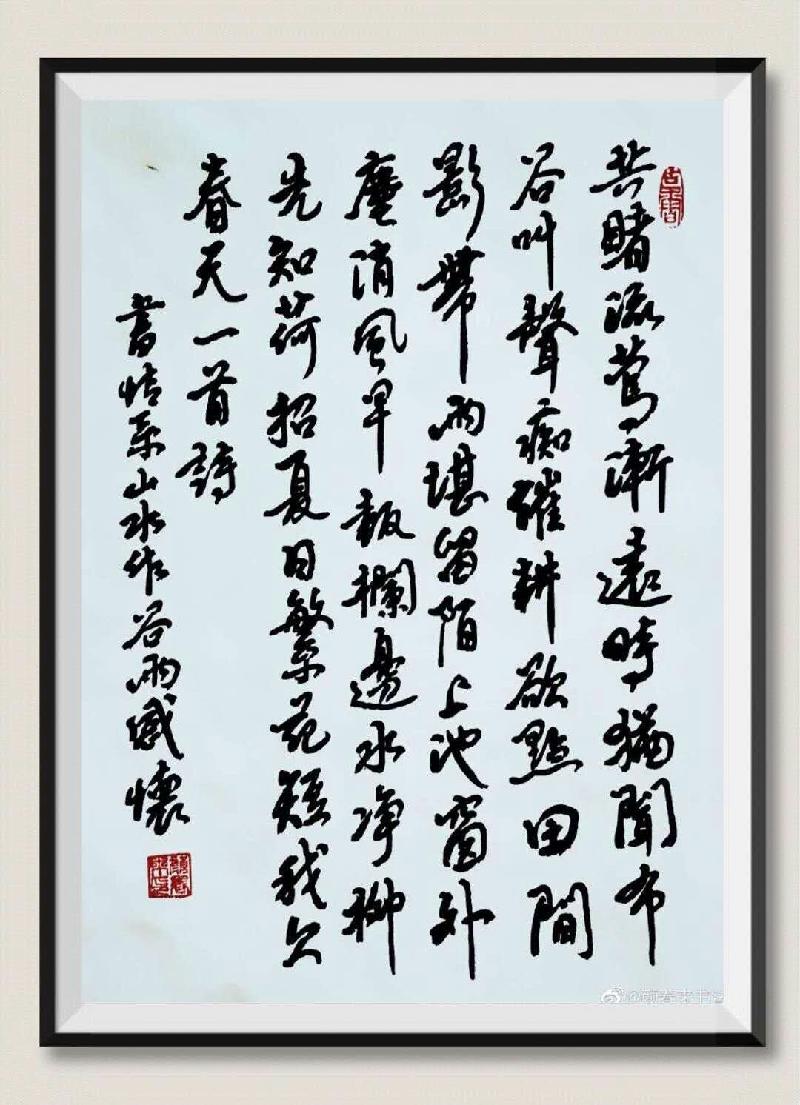 共睹流鶯漸遠時猶聞布
谷叫聲痴催耕欲點田間
影帶雨堪留陌上池窗外
塵消風早報欄邊水淨柳
先知荷招夏日繁花疑我欠
春天一首詩
書情系山水作谷雨感懷